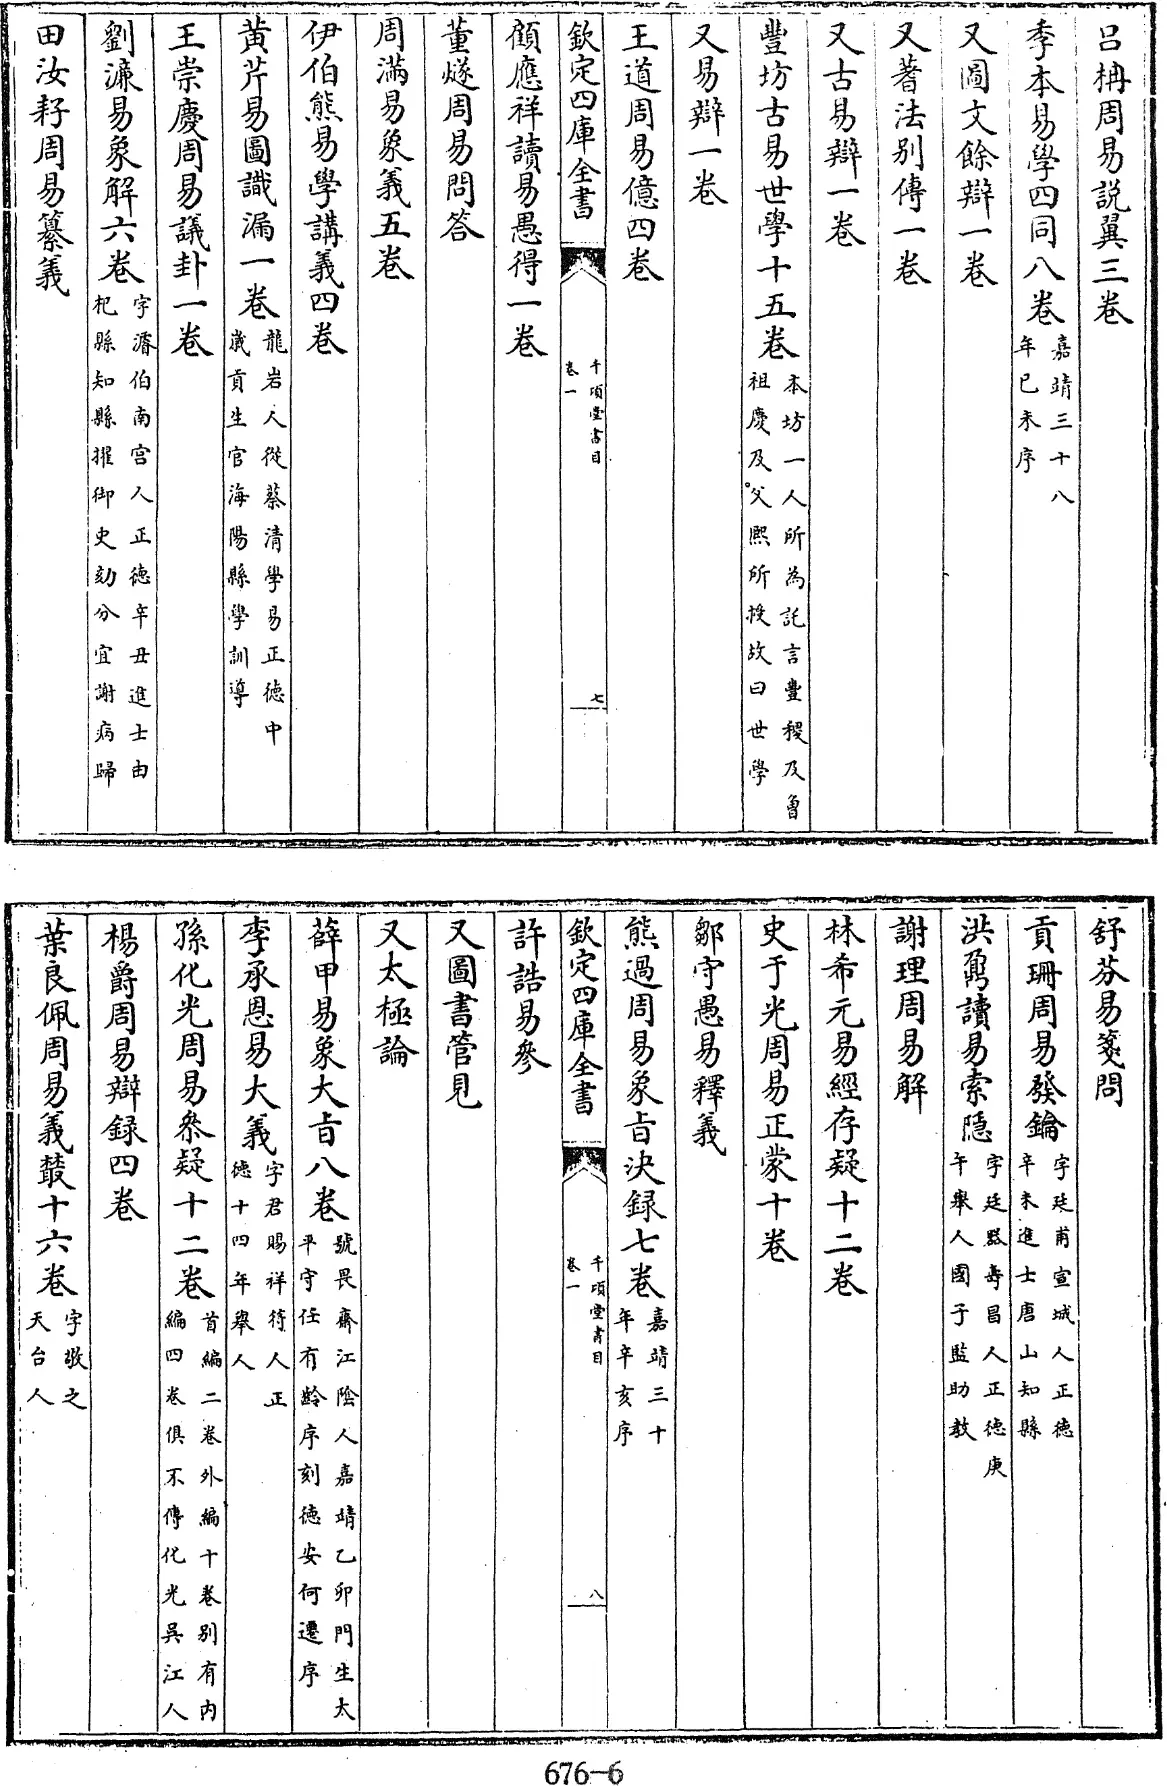 呂柟周易説翼三卷
季本易學四同八卷嘉靖三十八年己未序
又圖文餘辯一卷
又蓍法别傳一卷
又古易辯一卷
豐坊古易世學十五卷本坊一人所為託言豐稷及曾祖慶及父熙所授故曰世學
又易辯一卷
王道周易億四卷
欽定四庫全書 千頃堂書目卷一 七
顧應祥讀易愚得一卷
董燧周易問答
周滿易象義五卷
伊伯熊易學講義四卷
黄芹易圖識漏一卷龍岩人從蔡清學易正德中歲貢生官海陽縣學訓導
王崇慶周易議卦一卷
劉濂易象解六卷字濬伯南宫人正德辛丑進士由杞縣知縣擢御史劾分宜謝病歸
田汝耔周易纂義
舒芬易箋問
貢珊周易發鑰字廷甫宣城人正德辛未進士唐山知縣
洪鼐讀易索隱字廷器壽昌人正德庚午舉人國子監助教
謝理周易解
林希元易經存疑十二卷
史于光周易正蒙十卷
鄒守愚易釋義
熊過周易象旨決録七卷嘉靖三十年辛亥序
欽定四庫全書 千頃堂書目卷一 八
許誥易參
又圖書管見
又太極論
薛甲易象大旨八卷號畏齋江陰人嘉靖乙卯門生太平守任有齡序刻德安何遷序
李承恩易大義字君賜祥符人正德十四年舉人
孫化光周易參疑十二卷首編二卷外編十卷别有内編四卷俱不傳化光吳江人
楊爵周易辯録四卷
葉良佩周易義叢十六卷字敬之天台人
676-6